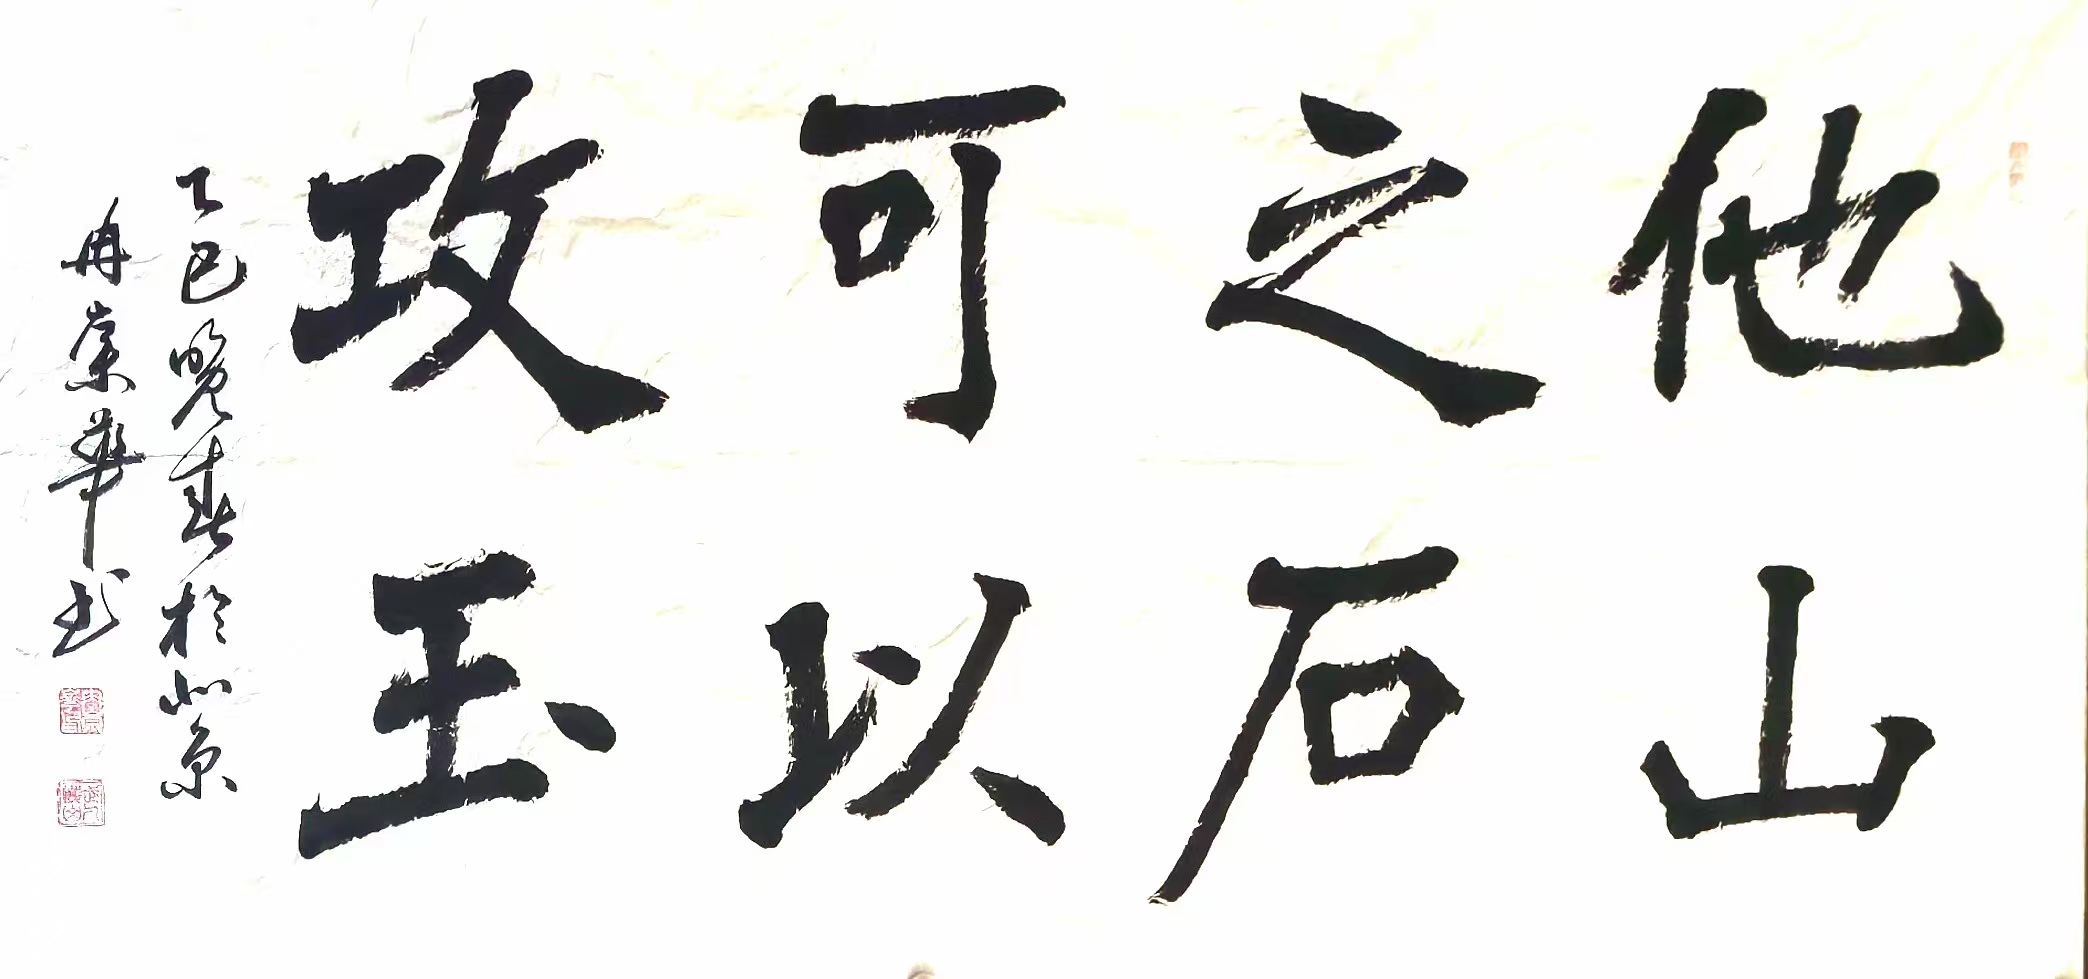 他山
之石
可以
攻玉
乙巳晚春於北京
冉崇華书